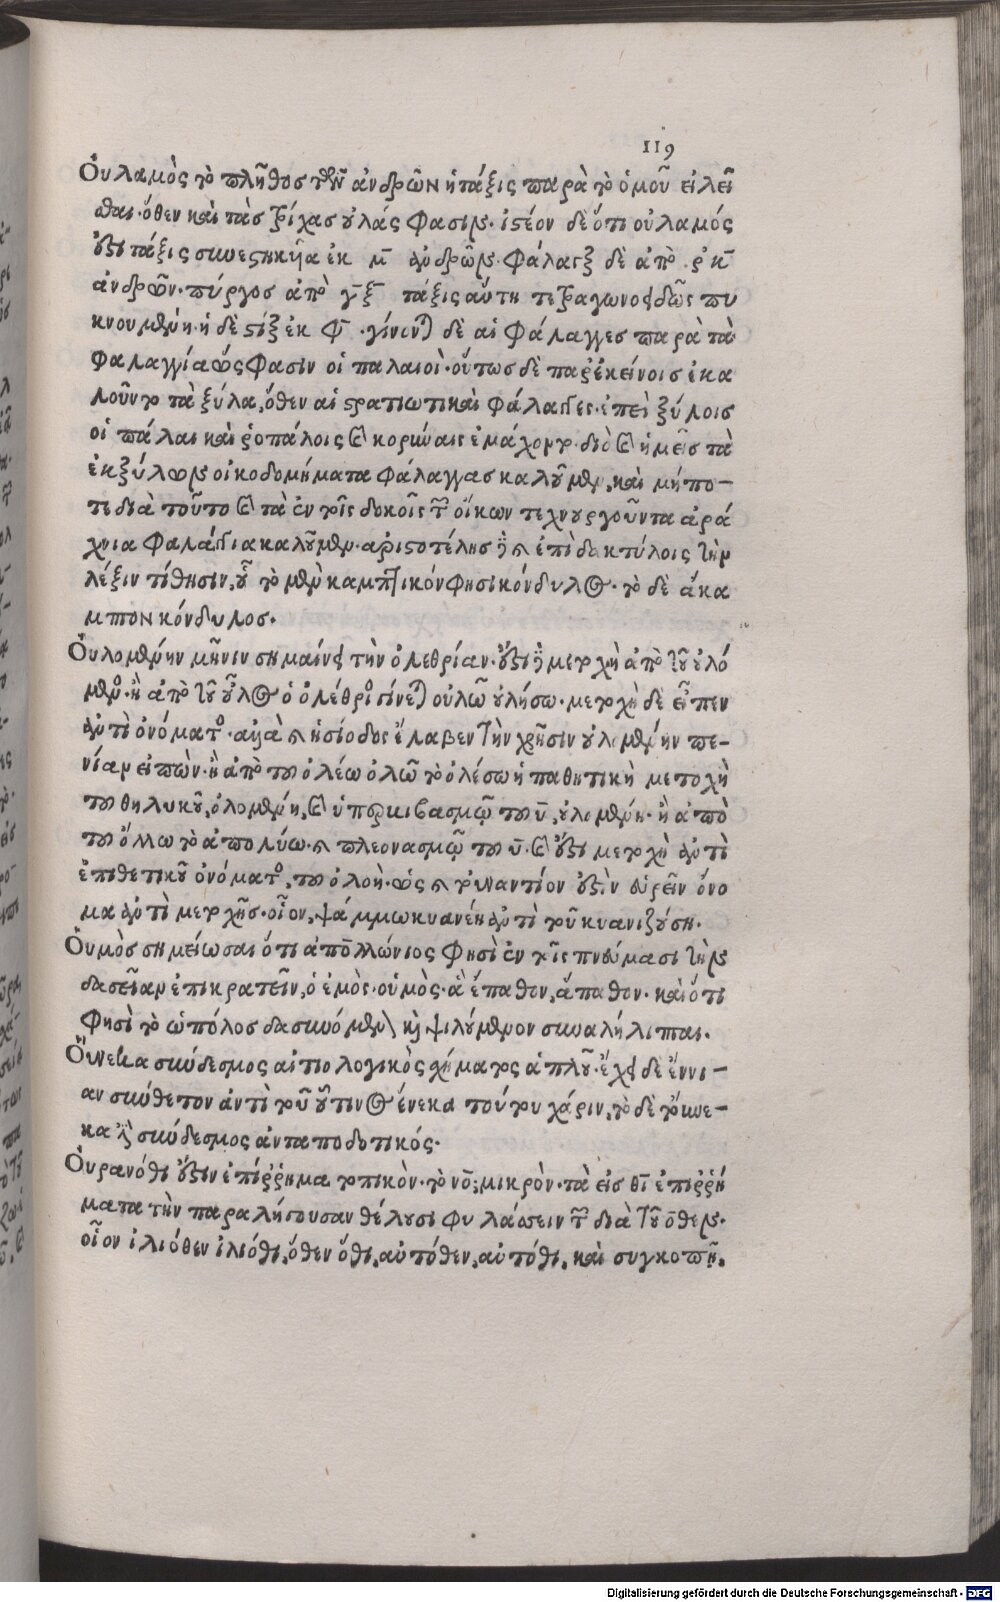 119
Οὐλαμὸς τὸ πλῆθος τῶν ἀνδρῶν ἡ τάξις παρὰ τὸ ὁμοῦ εἰλεῖ
σθαι· ὅθεν καὶ τὰς τρίχας οὐλάς φασιν. ἰστέον δὲ ὅτι οὐλαμός
ἐστι τάξις συνεστηκυῖα ἐκ μ̄ ἀνδρῶν. φάλαγξ δὲ ἀπὸ ρκ̄
ἀνδρῶν· πύργος ἀπὸ γ̄ξ̄ τάξις αὕτη τετραγωνοειδῶς πυ
κνουμένη· ἡ δὲ στίξ ἐκ φ̄ · γίνονται δὲ αἱ φάλαγγες παρὰ τὰ
φαλαγγία ὥς φασιν οἱ παλαιοὶ· οὕτως δὲ παρ' ἐκείνοις ἐκα
λοῦντο τὰ ξύλα, ὅθεν αἱ στρατιωτικαὶ φάλαγγες· ἐπεὶ ξύλοις
οἱ πάλαι καὶ ῥοπάλοις καὶ κορύναις ἐμάχοντο· διὸ καὶ ἡμεῖς τὰ
ἐκ ξύλων οἰκοδομήματα φάλαγγας καλοῦμεν, καὶ μήπο-
τε διὰ τοῦτο καὶ τὰ ἐν τοῖς δοκοῖς τῶν οἴκων τεχνουργοῦντα ἀρά
χνια φαλάγγια καλοῦμεν· ἀριστοτέλης καὶ ἐπὶ δακτύλοις τὴν
λέξιν τίθησιν, οὗ τὸ μὲν καμπτικόν φησι κόνδυλος· τὸ δὲ ἄκα
μπτον κόνδυλος.
Οὐλομένην μῆνιν σημαίνει τὴν ὀλεθρίαν· ἔστι μετοχὴ ἀπὸ τοῦ οὐλό
μενος· ἢ ἀπὸ τοῦ οὖλος ὁ ὀλέθριος γίνεται οὐλῶ οὐλήσω· μετοχὴ δὲ εἶπεν
ἀντὶ ὀνόματος· ἡσίοδος ἔλαβεν τὴν χρῆσιν οὐλομένην πε-
νίαν εἰπών· ἢ ἀπὸ τοῦ ὀλέω ὀλῶ τὸ ὀλέσω ἡ παθητικὴ μετοχὴ
τοῦ θηλυκοῦ, ὀλομένη, καὶ ὑποβιβασμῷ τοῦ ῡ, οὐλομένη· ἢ ἀπὸ
τοῦ ὄλλω τὸ ἀπολύω· πλεονασμῷ τοῦ ῡ· καὶ ἔστι μετοχὴ ἀντὶ
ἐπιθετικοῦ ὀνόματος, τοῦ ὀλοὴ· ὡς καὶ τοὐναντίον ἐστὶν εὑρεῖν ὄνο
μα ἀντὶ μετοχῆς· οἷον, ψάμμω κυανέη ἀντὶ τοῦ κυανιζούση.
Οὑμὸς σημείωσαι ὅτι ἀπολλώνιος φησὶ ἐν τοῖς πνεύμασι τὴν
δασεῖαν ἐπικρατεῖν, ὁ ἐμὸς· οὑμὸς· ἃ ἔπαθον, ἅπαθον· καὶ ὅτι
φησὶ τὸ ὡπόλος δασυνόμενον καὶ ψιλούμενον συναλήλιπται.
Οὕνεκα σύνδεσμος αἰτιολογικὸς σχήματος ἁπλοῦ· ἔχει δὲ ἔννοι-
αν σύνθετον ἀντὶ τοῦ οὗτινος ἕνεκα τούτου χάριν, τὸ δὲ τοὔνε-
κα σύνδεσμος ἀνταποδοτικός.
Οὐρανόθι ἔστιν ἐπίρρημα τοπικὸν· τὸ νο̄; μικρὸν· τὰ εἰς θῑ ἐπιρρή
ματα τὴν παραλήγουσαν θέλουσι φυλάσσειν τῶν διὰ τοῦ ο̄θεν·
οἷον ἰλιόθεν ἰλιόθι, ὅθεν ὅθι, αὐτόθεν, αὐτόθι, καὶ συγκοπῇ.
Digitalisierung gefördert durch die Deutsche Forschungsgemeinschaft - DFG